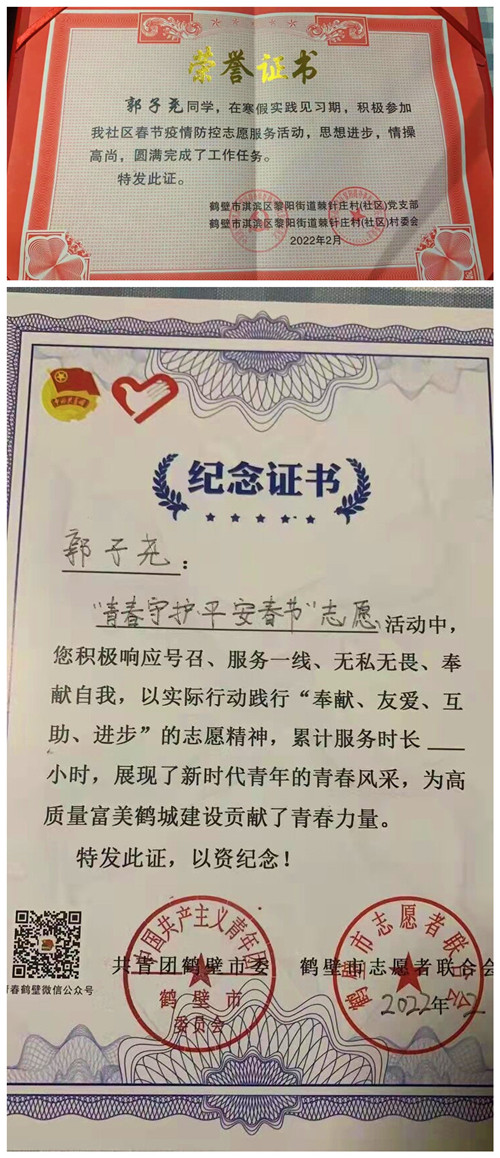 荣誉证书
郭子尧同学，在寒假实践见习期，积极参加
我社区春节疫情防控志愿服务活动，思想进步，情操
高尚，圆满完成了工作任务。
特发此证。
鹤壁市淇滨区黎阳街道棘针庄村(社区)党支部
鹤壁市淇滨区黎阳街道棘针庄村(社区)村委会
2022年2月
纪念证书
郭子尧：
"青春守护·平安春节"志愿活动中，
您积极响应号召、服务一线、无私无畏、奉
献自我，以实际行动践行“奉献、友爱、互
助、进步”的志愿精神，累计服务时长
小时，展现了新时代青年的青春风采，为高
质量富美鹤城建设贡献了青春力量。
特发此证，以资纪念！
中国共产主义青年团
鹤壁市
委员会
共青团鹤壁市委
鹤壁市志愿者联合会
鹤壁市志愿者联合会
2022年
青春鹤壁微信公众号